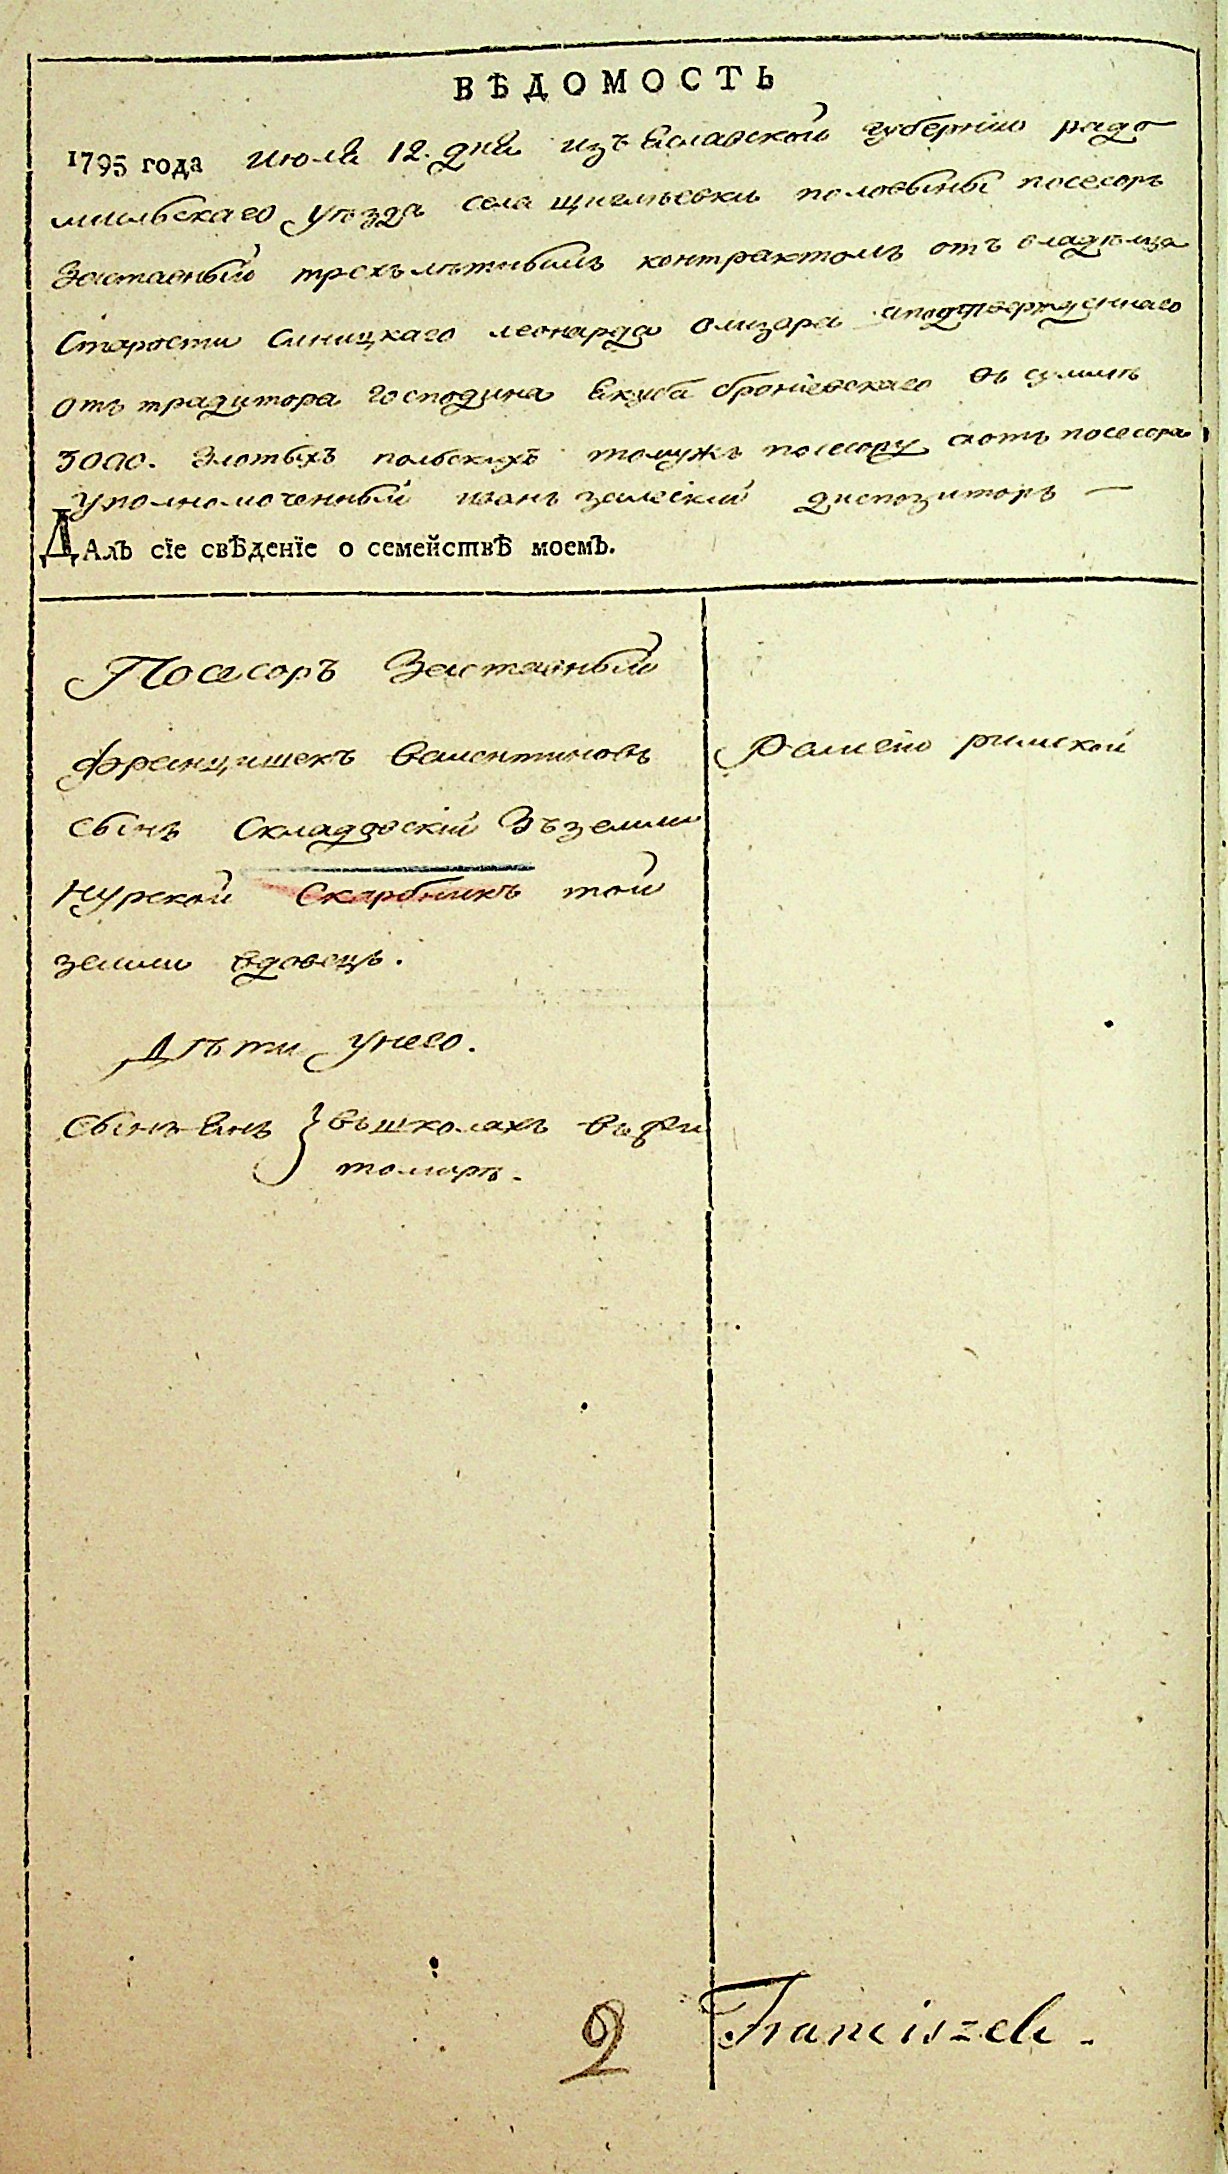 ВѢДОМОСТЬ
1795 года Июля 12. дня изъяславской губернїи радо
мыльскаго уѣзда села половыны посесоръ
Заставный трехълѣтнымъ контрактомъ отъ владѣлца
Старосты Синицкаго леонарда олизара
отъ традитора господина якуба бронїевскаго въ суммѣ
3000. Злотыхъ польскихъ томужъ посесору аотъ посесора
уполномоченный иванъ залескїй диспозиторъ —
ДАлъ сїе свѢденїе о семействѢ моемЪ.
Посесоръ Заставный
францишекъ валентиновъ
сынъ Складовскїй Зъземли
Нурской Скарбникъ той
земли вдовецъ.
Дѣти унего.
Сынъ Янъ } въшколахъ въжи
томирѣ.
фамелїи римской
2
Franciszek.